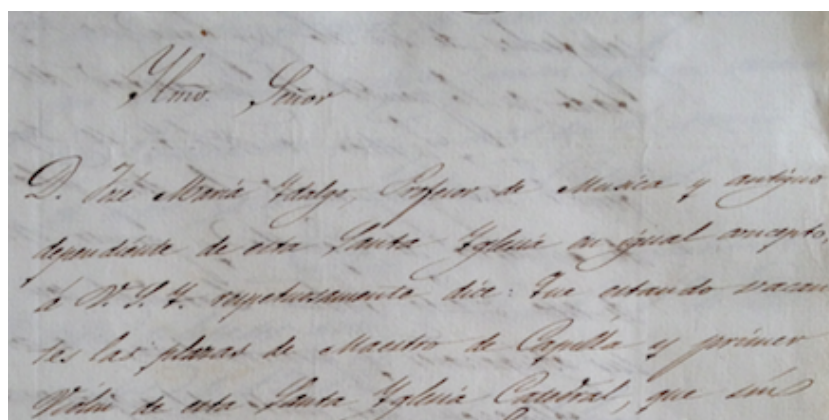 Ylmo. Señor
D. José Maria Ydalgo, Profesor de Musica y antiguo
dependiente de esta Santa Yglesia en igual concepto,
á V. S. Y. respetuosamente dice: Que estando vacan
tes las plazas de Maestro de Capilla y primer
Violin de esta Santa Yglesia Catedral, que